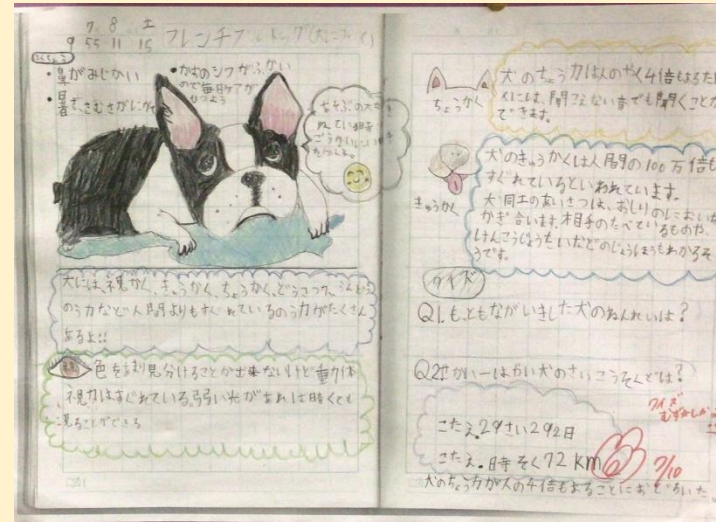 9 7 8 土
55 11 15
フレンチブルドッグ(犬について)
とくちょう
・鼻がみじかい
・暑さ、さむさがにがて
・かおのシワがふかい
ので毎日ケアが
ひつよう
犬には、視かく、きゅうかく、ちょうかく、どうさつ力、うんどう
のう力など人間よりもすぐれているのう力がたくさん
あるよ!!
色をあまり見分けることが出来ないけど重力体
視力はすぐれている。弱い光があれば暗くても
見ることができる
ちょうかく
犬のちょう力は人のやく4倍もある
人には、聞こえない音でも聞くことが
できます。
きゅうかく
犬のきゅうかくは人間の100万倍も
すぐれているといわれています。
犬同士のあいさつは、おしりのにおいを
かぎ合います。相手のたべているものや、
けんこうじょうたいなどのじょうほうもわかるそ
うです。
クイズ
Q1.もっともながいきした犬のねんれいは?
Q2.せかい一はやい犬のさいこうそくどは?
こたえ.29さい292日
こたえ.時そく72km
クイズ
むずかしか
7/10
犬のちょう力が人の4倍もあることにおどろいた